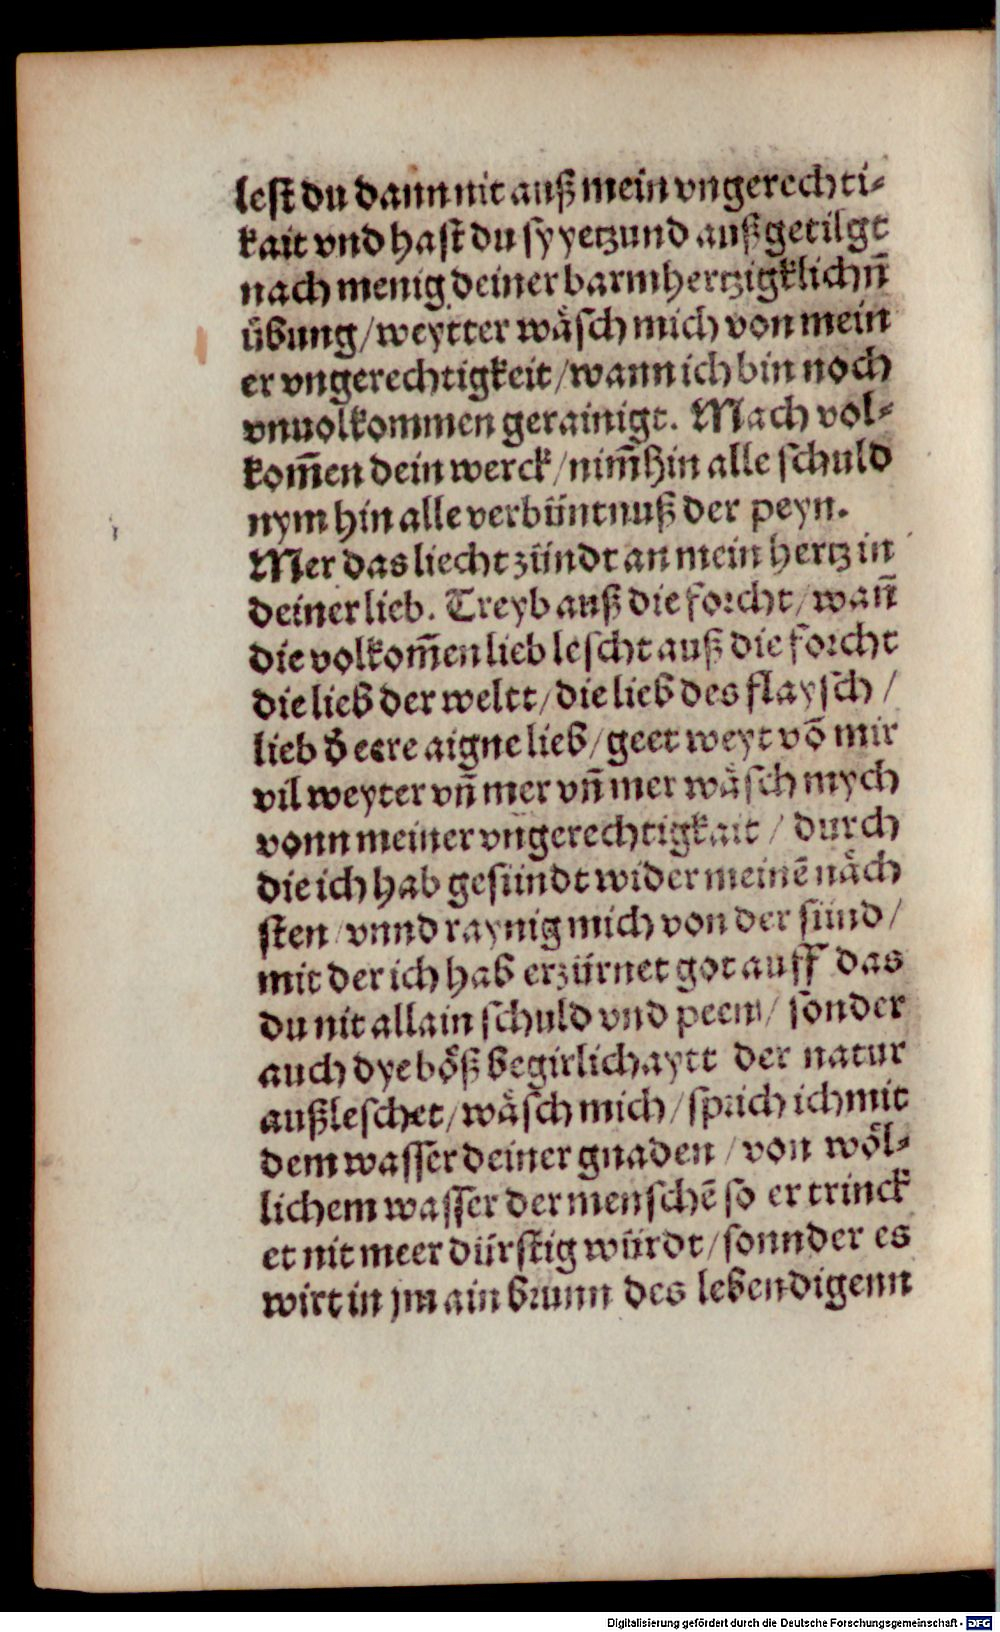 lest du dann nit auß mein vngerechti⸗
kait vnd hast du sy yetzund außgetilgt
nach menig deiner barmhertzigklichn̄
übung/weytter wäsch mich von mein
er vngerechtigkeit/wann ich bin noch
vnuolkommen gerainigt. Mach vol⸗
kom̄en dein werck/nim̄ hin alle schuld
nym hin alle verbüntnuß der peyn.
Mer das liecht zündt an mein hertz in
deiner lieb. Treyb auß die forcht/wan̄
die volkom̄en lieb lescht auß die forcht
die lieb der weltt/die lieb des flaysch/
lieb d̄ eere aigne lieb/geet weyt vō mir
vil weyter vn̄ mer vn̄ mer wäsch mych
vonn meiner vngerechtigkait/durch
die ich hab gesündt wider meinē näch
sten/vnnd raynig mich von der sünd/
mit der ich hab erzürnet got auff das
du nit allain schuld vnd peen/sonder
auch dye böß begirlichaytt der natur
außleschet/wäsch mich/sprich ich mit
dem wasser deiner gnaden/von wöl⸗
lichem wasser der menschē so er trinck
et nit meer dürstig würdt/sonnder es
wirt in jm ain brunn des lebendigenn
Digitalisierung gefördert durch die Deutsche Forschungsgemeinschaft - DFG